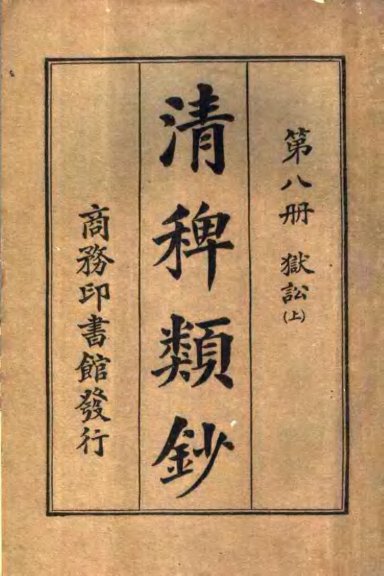 第八册 獄訟(上)
清稗類鈔
商務印書館發行